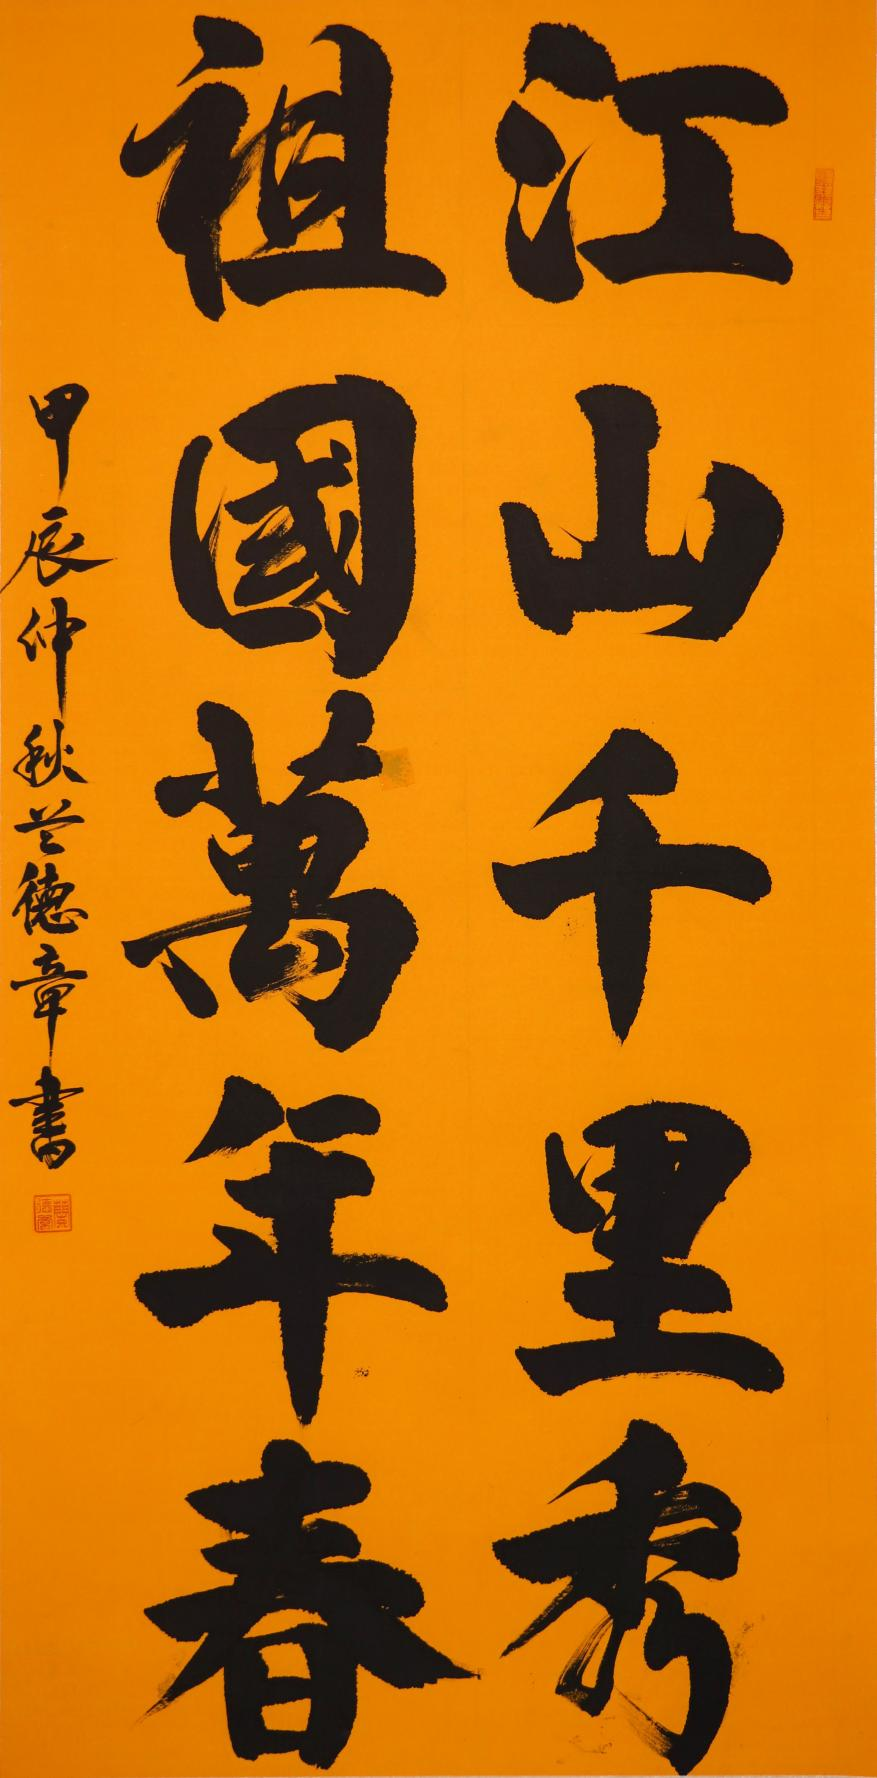 江山千里秀
祖國萬年春
甲辰仲秋兰德章书